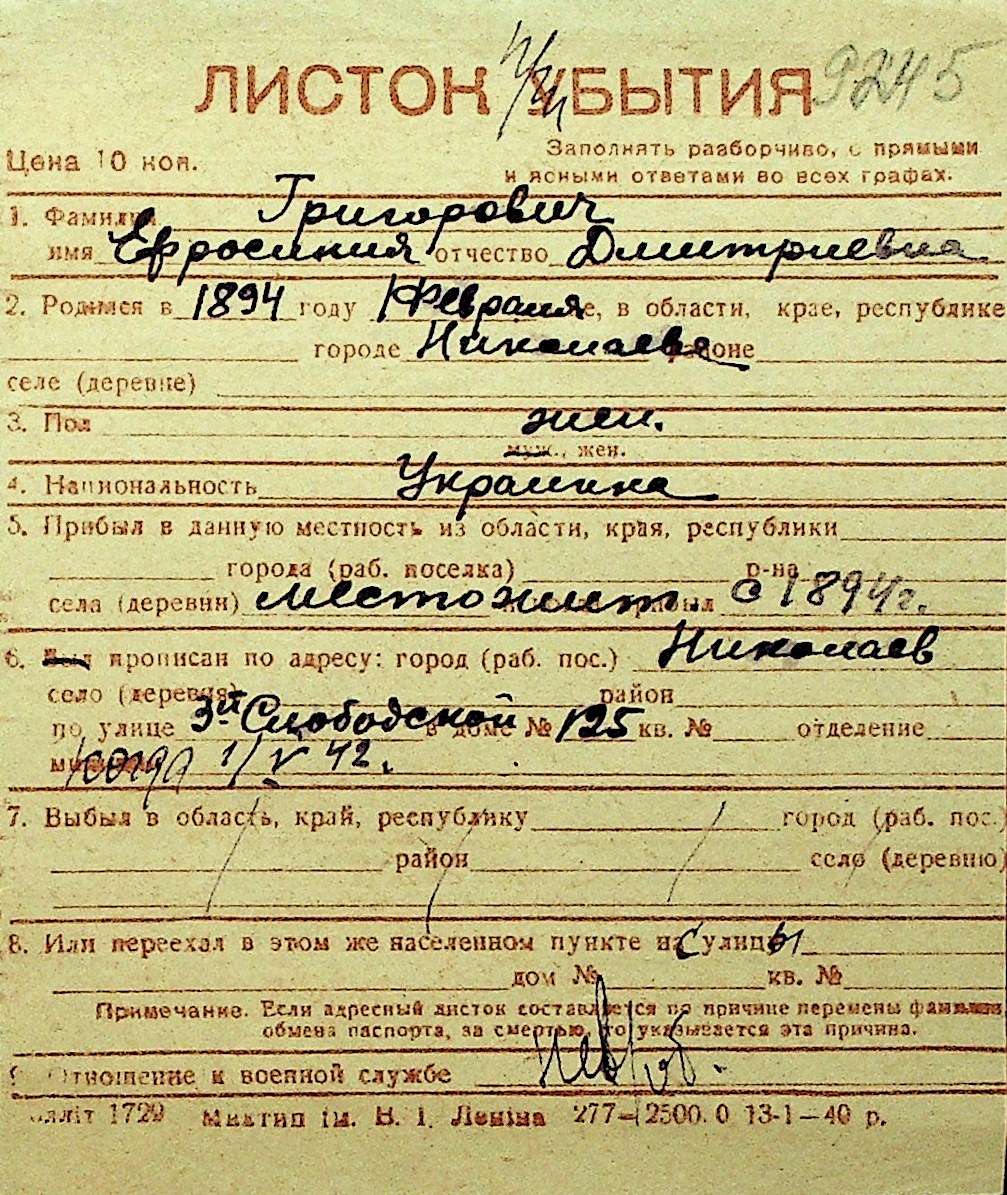 ЛИСТОК УБЫТИЯ 9245
Цена 10 коп.
Заполнять разборчиво, с прямыми
и ясными ответами во всех графах.
1. Фамилия Григорович
имя Ефросиния отчество Дмитриевна
2. Родился в 1894 году 1 Февраля е, в области, крае, республике
городе Николаеве районе
селе (деревне)
3. Пол жен.
муж., жен.
4. Национальность Украинка
5. Прибыл в данную местность из области, края, республики
города (раб. поселка) р-на
села (деревни) местожит. прибыл с 1894 г.
6. прописан по адресу: город (раб. пос.) Николаев
село (деревня) район
по улице 3й Слободской в доме № 125 кв. № отделение
когда 1/V 42.
7. Выбыл в область, край, республику город (раб. пос.)
район село (деревню)
8. Или переехал в этом же населенном пункте на с улицы
дом № кв. №
Примечание. Если адресный листок составляется по причине перемены фамилии,
обмена паспорта, за смертью, то указывается эта причина.
9. Отношение к военной службе
1729 ім. В. І. Леніна 277—2500.0 13-1—40 р.